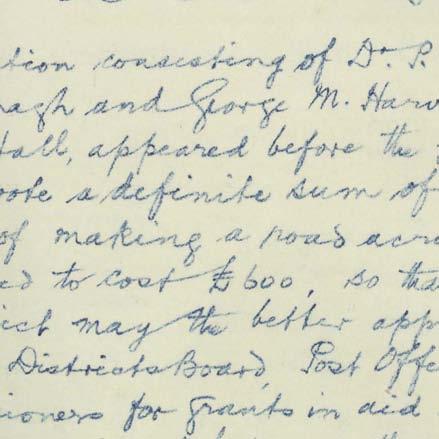 tion consisting of Dr. P.
nagh and George M. Harv
Hall, appeared before the
vote a definite sum of
of making a road acro
ed to cost £600, so tha
ict may the better app
Districts Board, Post Offe
ioners for grants in aid